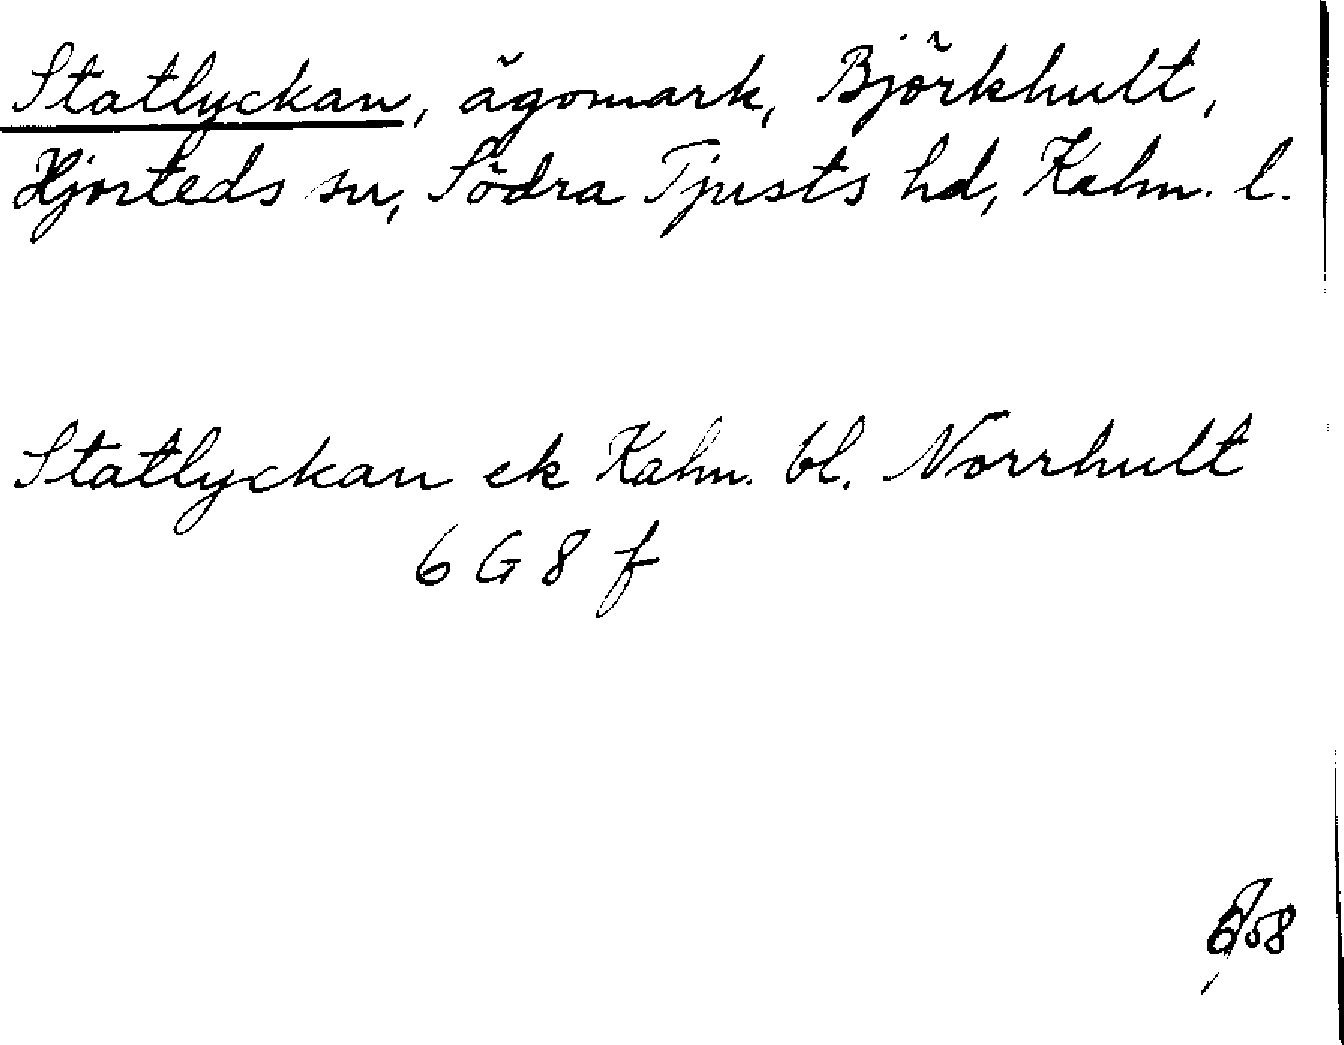 Statlyckan, ägomark, Björkhult,
Hjorteds sn, Södra Tjusts hd, Kalm. l.
Statlyckan ek Kalm. bl. Norrhult
6 G 8 f